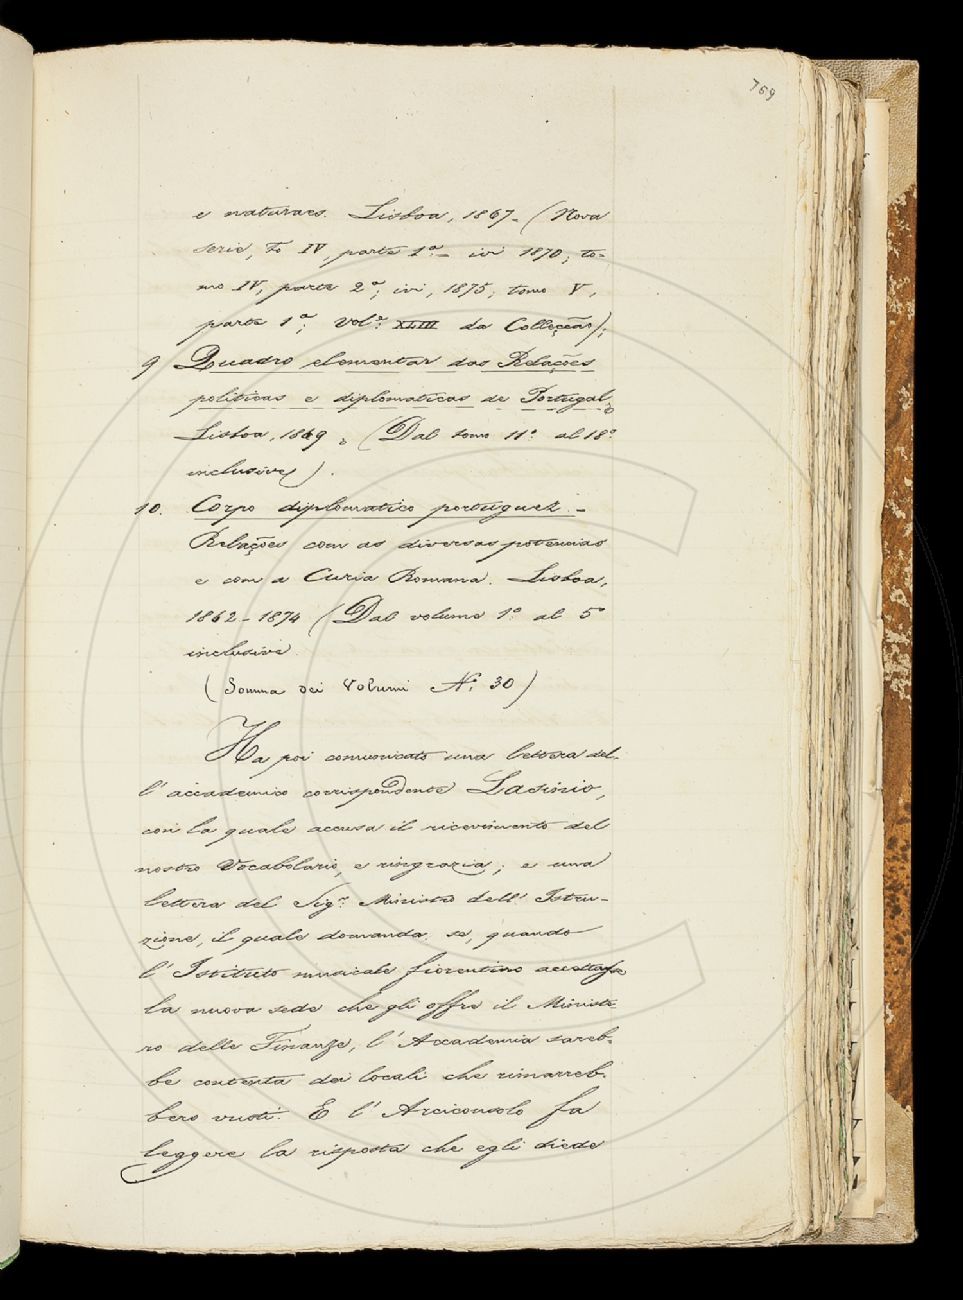 769
e naturaes. Lisboa, 1867 - (Nova
serie, to IV, parte 1ª - ivi 1870; to-
mo IV, parte 2ª; ivi, 1875, tomo V,
parte 1ª; vol.º XLIII da Collecção);
9 Quadro elementar das Relações
politicas e diplomaticas de Portugal,
Lisboa, 1869, (Dal tomo 11º al 18º
inclusive).
10. Corpo diplomatico portuguez. -
Relações com as diversas potencias
e com a Curia Romana. Lisboa,
1862-1874 (Dal volume 1º al 5º
inclusive
(Somma dei Volumi N.º 30)
Ha poi comunicato una lettera del-
l'accademico corrispondente
con la quale accusa il ricevimento del
nostro Vocabolario, e ringrazia; e una
lettera del Sigr. Ministro dell'Istru-
zione, il quale domanda, se, quando
l'Istituto musicale fiorentino accettasse
la nuova sede che gli offre il Ministe-
ro delle Finanze, l'Accademia sareb-
be contenta dei locali che rimarreb-
bero vuoti. E l'Arciconsolo fa
leggere la risposta che egli diede